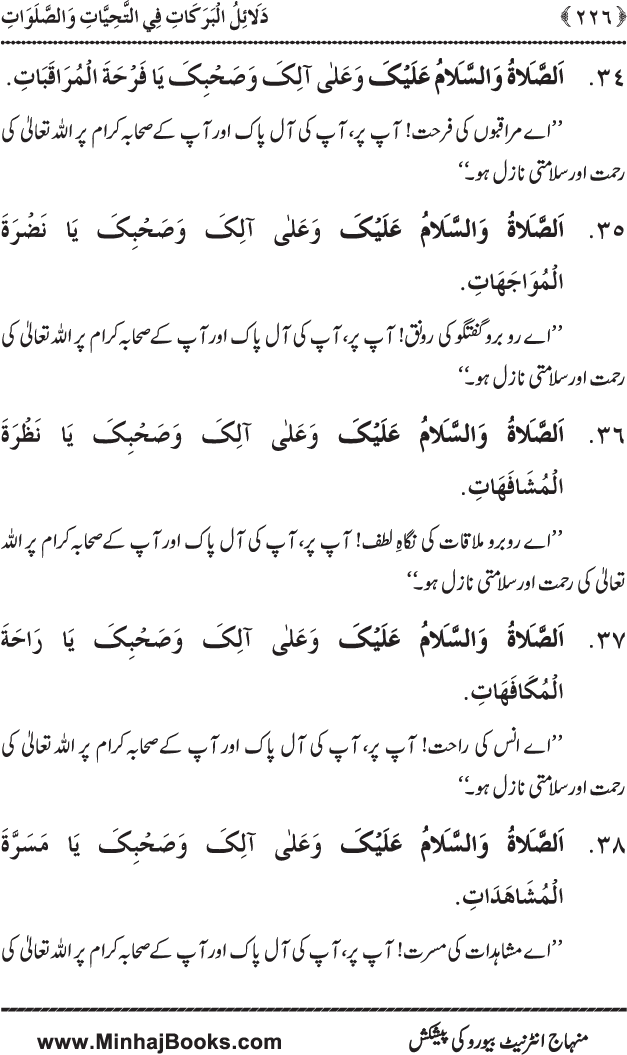 ﴿٢٢٦﴾ دَلَائِلُ الْبَرَكَاتِ فِي التَّحِيَّاتِ وَالصَّلَوَاتِ
٣٤. اَلصَّلَاةُ وَالسَّلَامُ عَلَيْکَ وَعَلٰی آلِکَ وَصَحْبِکَ يَا فَرْحَةَ الْمُرَاقَبَاتِ.
’’اے مراقبوں کی فرحت! آپ پر، آپ کی آل پاک اور آپ کے صحابہ کرام پر اللہ تعالیٰ کی
رحمت اور سلامتی نازل ہو۔‘‘
٣٥. اَلصَّلَاةُ وَالسَّلَامُ عَلَيْکَ وَعَلٰی آلِکَ وَصَحْبِکَ يَا نَضْرَةَ
الْمُوَاجَهَاتِ.
’’اے رو برو گفتگو کی رونق! آپ پر، آپ کی آل پاک اور آپ کے صحابہ کرام پر اللہ تعالیٰ کی
رحمت اور سلامتی نازل ہو۔‘‘
٣٦. اَلصَّلَاةُ وَالسَّلَامُ عَلَيْکَ وَعَلٰی آلِکَ وَصَحْبِکَ يَا نَظْرَةَ
الْمُشَافَهَاتِ.
’’اے روبرو ملاقات کی نگاہِ لطف! آپ پر، آپ کی آل پاک اور آپ کے صحابہ کرام پر اللہ
تعالیٰ کی رحمت اور سلامتی نازل ہو۔‘‘
٣٧. اَلصَّلَاةُ وَالسَّلَامُ عَلَيْکَ وَعَلٰی آلِکَ وَصَحْبِکَ يَا رَاحَةَ
الْمُكَافَهَاتِ.
’’اے انس کی راحت! آپ پر، آپ کی آل پاک اور آپ کے صحابہ کرام پر اللہ تعالیٰ کی
رحمت اور سلامتی نازل ہو۔‘‘
٣٨. اَلصَّلَاةُ وَالسَّلَامُ عَلَيْکَ وَعَلٰی آلِکَ وَصَحْبِکَ يَا مَسَرَّةَ
الْمُشَاهَدَاتِ.
’’اے مشاہدات کی مسرت! آپ پر، آپ کی آل پاک اور آپ کے صحابہ کرام پر اللہ تعالیٰ کی
منہاج انٹرنیٹ بیورو کی پیشکش www.MinhajBooks.com